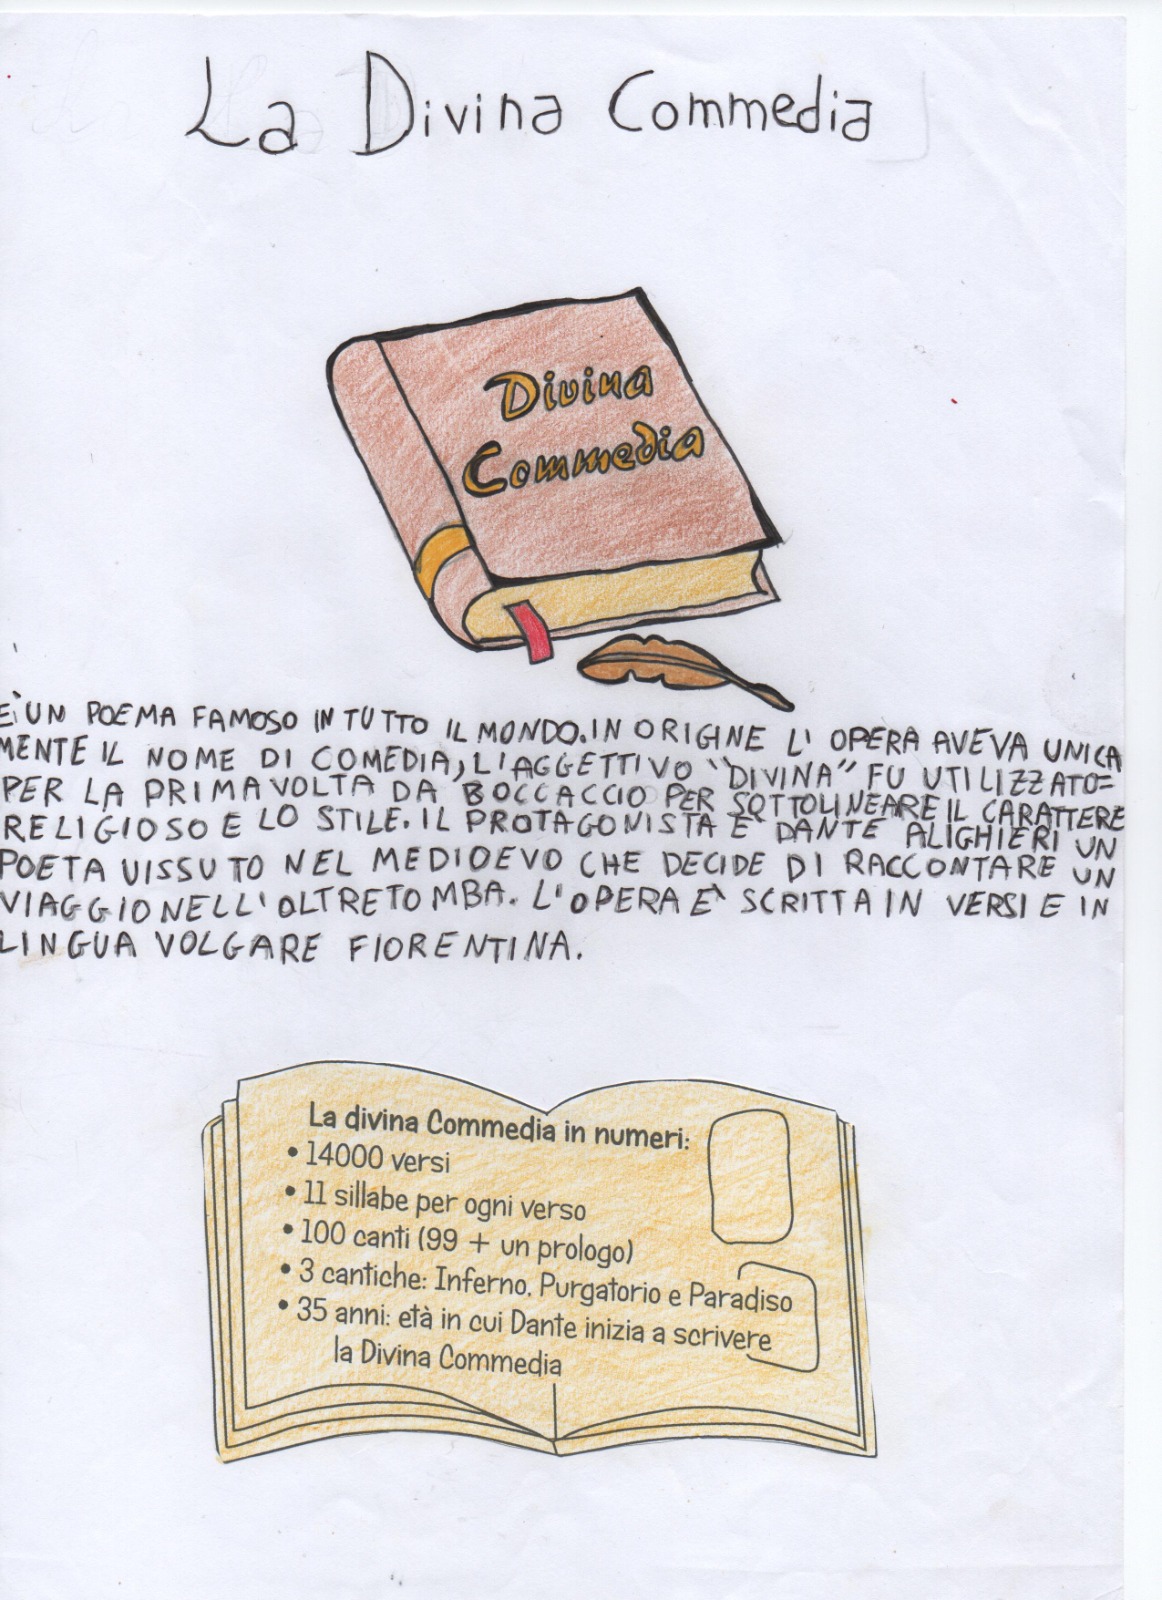 La Divina Commedia
Divina
Commedia
E' UN POEMA FAMOSO IN TUTTO IL MONDO. IN ORIGINE L' OPERA AVEVA UNICA
MENTE IL NOME DI COMEDIA, L'AGGETTIVO "DIVINA" FU UTILIZZATO=
PER LA PRIMA VOLTA DA BOCCACCIO PER SOTTOLINEARE IL CARATTERE
RELIGIOSO E LO STILE. IL PROTAGONISTA È DANTE ALIGHIERI UN
POETA VISSUTO NEL MEDIOEVO CHE DECIDE DI RACCONTARE UN
VIAGGIO NELL'OLTRETOMBA. L'OPERA È SCRITTA IN VERSI E IN
LINGUA VOLGARE FIORENTINA.
La divina Commedia in numeri:
• 14000 versi
• 11 sillabe per ogni verso
• 100 canti (99 + un prologo)
• 3 cantiche: Inferno, Purgatorio e Paradiso
• 35 anni: età in cui Dante inizia a scrivere
la Divina Commedia